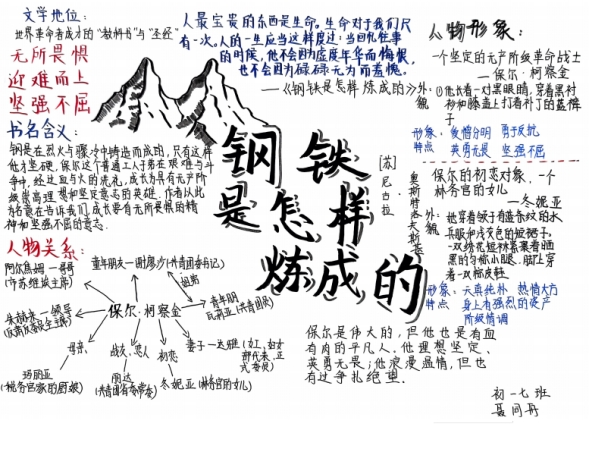 文学地位:
世界革命者成才的"教科书"与"圣经"
无所畏惧
迎难而上
坚强不屈
书名含义:
钢是在烈火与骤冷中铸造而成的,只有这样
他才坚硬,保尔这个普通工人子弟在艰难与斗
争中,经过血与火的洗礼,成长为具有无产阶
级崇高理想和坚定意志的英雄,作者以此
为名意在告诉我们,成长要有无所畏惧的精
神和坚强不屈的意志.
人最宝贵的东西是生命。生命对于我们只
有一次,人的一生应当这样度过:当回忆往事
的时候,他不会因为虚度年华而悔恨,
也不会因为碌碌无为而羞愧。
——《钢铁是怎样炼成的》
钢铁
是怎样
炼成的
[苏]
尼古拉
奥斯特洛夫斯基
人物关系:
阿尔焦姆—哥哥
童年朋友—谢廖沙
保尔·柯察金
朱赫来—领导
母亲
战友、恋人
初恋
妻子—达雅
冬妮亚(林务官的女儿)
保尔是伟大的,但他也是有血
有肉的平凡人.他理想坚定、
英勇无畏;他浪漫温情,但也
有过争扎绝望.
人物形象:
一个坚定的无产阶级革命战士
——保尔·柯察金
外貌:
①他长着一对黑眼睛,穿着黑衬
衫和膝盖上打着补丁的蓝裤
子
形象特点
爱憎分明 勇于反抗
英勇无畏 坚强不屈
保尔的初恋对象、一个
林务官的女儿
——冬妮亚
外貌:
她穿着领子有蓝条纹的水
兵服和浅灰色的短裙子.
一双绣花短袜紧裹着晒
黑的匀称小腿.脚上穿
着一双棕皮鞋
形象特点
天真纯朴 热情大方
身上有强烈的资产
阶级情调
初一七班